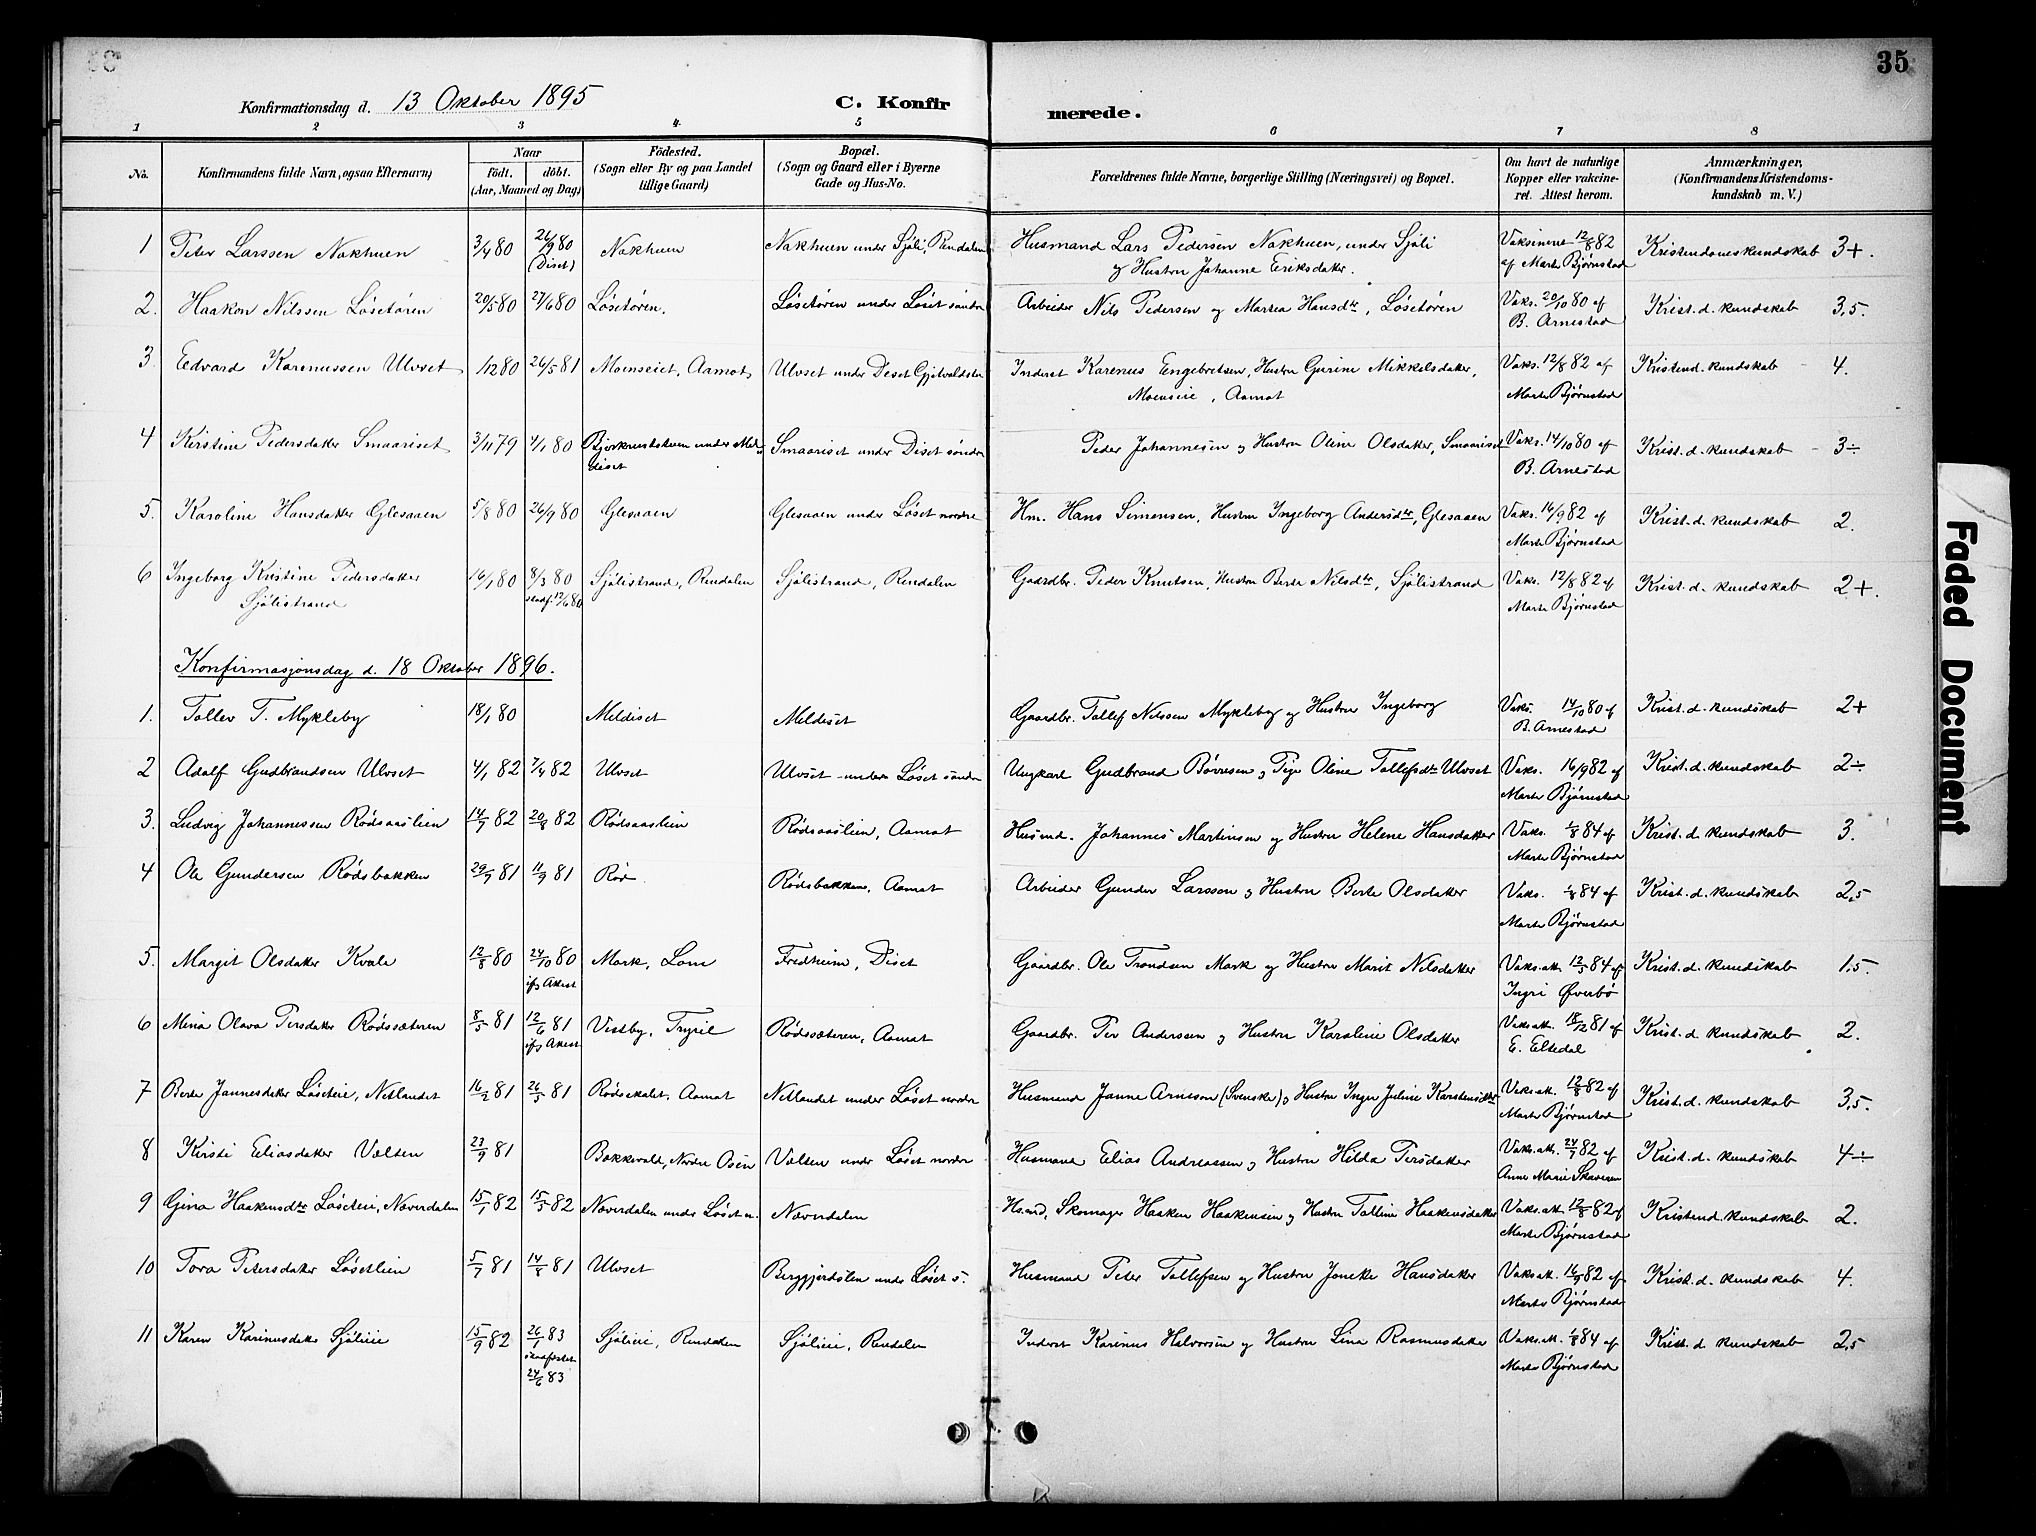 35
Konfirmationsdag d. 13 Oktober 1895
C. Konfirmerede.
1 2 3 4 5 6 7 8
No. | Konfirmandens fulde Navn, ogsaa Efternavn) | Naar födt. döbt. (Aar, Maaned og Dag) | Födested. (Sogn eller By og paa Landet tillige Gaard) | Bopæl. (Sogn og Gaard eller i Byerne Gade og Hus-No. | Forældrenes fulde Navne, borgerlige Stilling (Næringsvei) og Bopæl. | Om havt de naturlige Kopper eller vakcineret. Attest herom. | Anmærkninger, (Konfirmandens Kristendomskundskab m. V.)
1 Peter Larssen Nakhuen | 3/4 80 | 26/9 80 (Diset) | Nakhuen | Nakhuen under Sjöli, Rendalen | Husmand Lars Pedersen Nakhuen, under Sjöli og Hustru Johanne Eriksdatter. | Vaksineret 12/8 82 af Marte Bjørnstad | Kristendomskundskab 3+.
2. Haakon Nilssen Løsetøren | 20/5 80 | 27/6 80 | Løsetøren. | Løsetøren under Løset söndre | Arbeider Nils Pedersen og Martea Hansdtr, Løsetøren | Vaks. 20/10 80 af B. Arnestad | Krist. d. kundskab 3,5.
3. Edvard Karenussen Ulvset | 1/12 80 | 26/5 81 | Moenseiet, Aamot | Ulvset under Diset Gjetvoldsten | Inderst Karenus Engebretsen, Hustru Gurine Mikkelsdatter, Moenseie, Aamot | Vaks. 12/8 82 af Marte Bjørnstad | Kristend. kundskab 4.
4 Kirstine Pedersdatter Smaariset | 3/11 79 | 4/1 80 | under Meldiset | Smaariset under Diset söndre | Peder Johannesen og Hustru Oline Olsdatter, Smaariset | Vaks. 14/10 80 af B. Arnestad | Krist. d. kundskab 3÷
5. Karoline Hansdatter Glesaaen | 5/8 80 | 26/9 80 | Glesaaen | Glesaaen under Løset nordre | Hm. Hans Simensen, Hustru Ingeborg Andersdtr, Glesaaen | Vaks. 16/9 82 af Marte Bjørnstad | Krist. d. kundskab 2.
6 Ingeborg Kristine Pedersdatter Sjölistrand | 16/1 80 | 8/3 80 stadf. 17/6 80 | Sjölistrand, Rendalen | Sjölistrand, Rendalen | Gaardbr. Peder Knutsen, Hustru Berte Nilsdtr, Sjölistrand | Vaks. 12/8 82 af Marte Bjørnstad | Krist. d. kundskab 2+.
Konfirmasjonsdag d. 18 Oktober 1896.
1. Tollev T. Mykleby | 18/1 80 | Meldiset | Meldiset | Gaardbr. Tollef Nilssen Mykleby og Hustru Ingeborg | Vaks. 14/10 80 af B. Arnestad | Krist. d. kundskab 2+
2 Adolf Gudbrandsen Ulvset | 4/1 82 | 7/4 82 | Ulvset | Ulvset under Løset söndre | Ungkarl Gudbrand Börresen og Pige Oline Tollefsdtr Ulvset | Vaks. 16/9 82 af Marte Bjørnstad | Krist. d. kundskab 2÷
3. Ludvig Johannessen Rødsaaslien | 14/7 82 | 20/8 82 | Rødsaaslien | Rødsaaslien, Aamot | Husmd. Johannes Martinsen og Hustru Helene Hansdatter | Vaks. 1/8 84 af Marte Bjørnstad | Krist. d. kundskab 3.
4 Ole Gundersen Rødsbakken | 29/7 81 | 11/9 81 | Rød | Rødsbakken, Aamot | Arbeider Gunder Larsson og Hustru Berte Olsdatter | Vaks. 1/8 84 af Marte Bjørnstad | Krist. d. kundskab 2,5
5. Margit Olsdatter Kvale | 12/8 80 | 24/10 80 ifg Attest | Mork, Lom | Fredheim, Diset | Gaardbr. Ole Trondsen Mork og Hustru Marit Nilsdatter | Vaks. att. 12/5 84 af Ingri Øverbö | Krist. d. kundskab 1,5.
6 Mina Olava Persdatter Rødssæteren | 8/5 81 | 12/6 81 ifg Attest | Vestby, Trysil | Rødssæteren, Aamot | Gaardbr. Per Anderssen og Hustru Karoline Olsdatter | Vaks att. 18/12 81 af E. Eltedal | Krist. d. kundskab 2.
7 Berte Jannesdatter Løseteie, Netlandet | 16/2 81 | 26/5 81 | Rødsskalet, Aamot | Netlandet under Løset nordre | Husmand Janne Arnesson (Svenske) og Hustru Inger Juline Karstensdtr | Vaks att. 12/8 82 af Marte Bjørnstad | Krist. d. kundskab 3,5.
8 Kirsti Eliasdatter Vælten | 23/9 81 | Bakkevolt, Nordre Osen | Vælten under Løset nordre | Husmand Elias Andreassen og Hustru Hilda Persdatter | Vaks. att. 24/7 82 af Anne Marie Skaveren | Krist. d. kundskab 4÷
9 Gina Haakensdtr Løseteie, Næverdalen | 15/1 82 | 15/5 82 | Næverdalen under Løset n. | Næverdalen | Hsmd, Skomager Haaken Haakensen og Hustru Talline Haakensdatter | Vaks. att. 12/8 82 af Marte Bjørnstad | Kristend. kundskab 2.
10 Tora Petersdatter Løsetlien | 5/7 81 | 14/8 81 | Ulvset | Berggjerdslen under Løset s. | Husmand Peter Tollefsen og Hustru Joneke Hansdatter | Vaks att. 16/9 82 af Marte Bjørnstad | Krist. d. kundskab 4.
11 Karen Karinusdatter Sjølieie | 15/9 82 | 26/1 83 stadfæstet 24/6 83 | Sjølieie, Rendalen | Sjølieie, Rendalen | Inderst Karinus Halvorsen og Hustru Lina Rasmusdatter | Vaks. att. 1/8 84 af Marte Bjørnstad | Krist. d. kundskab 2,5
Faded Document